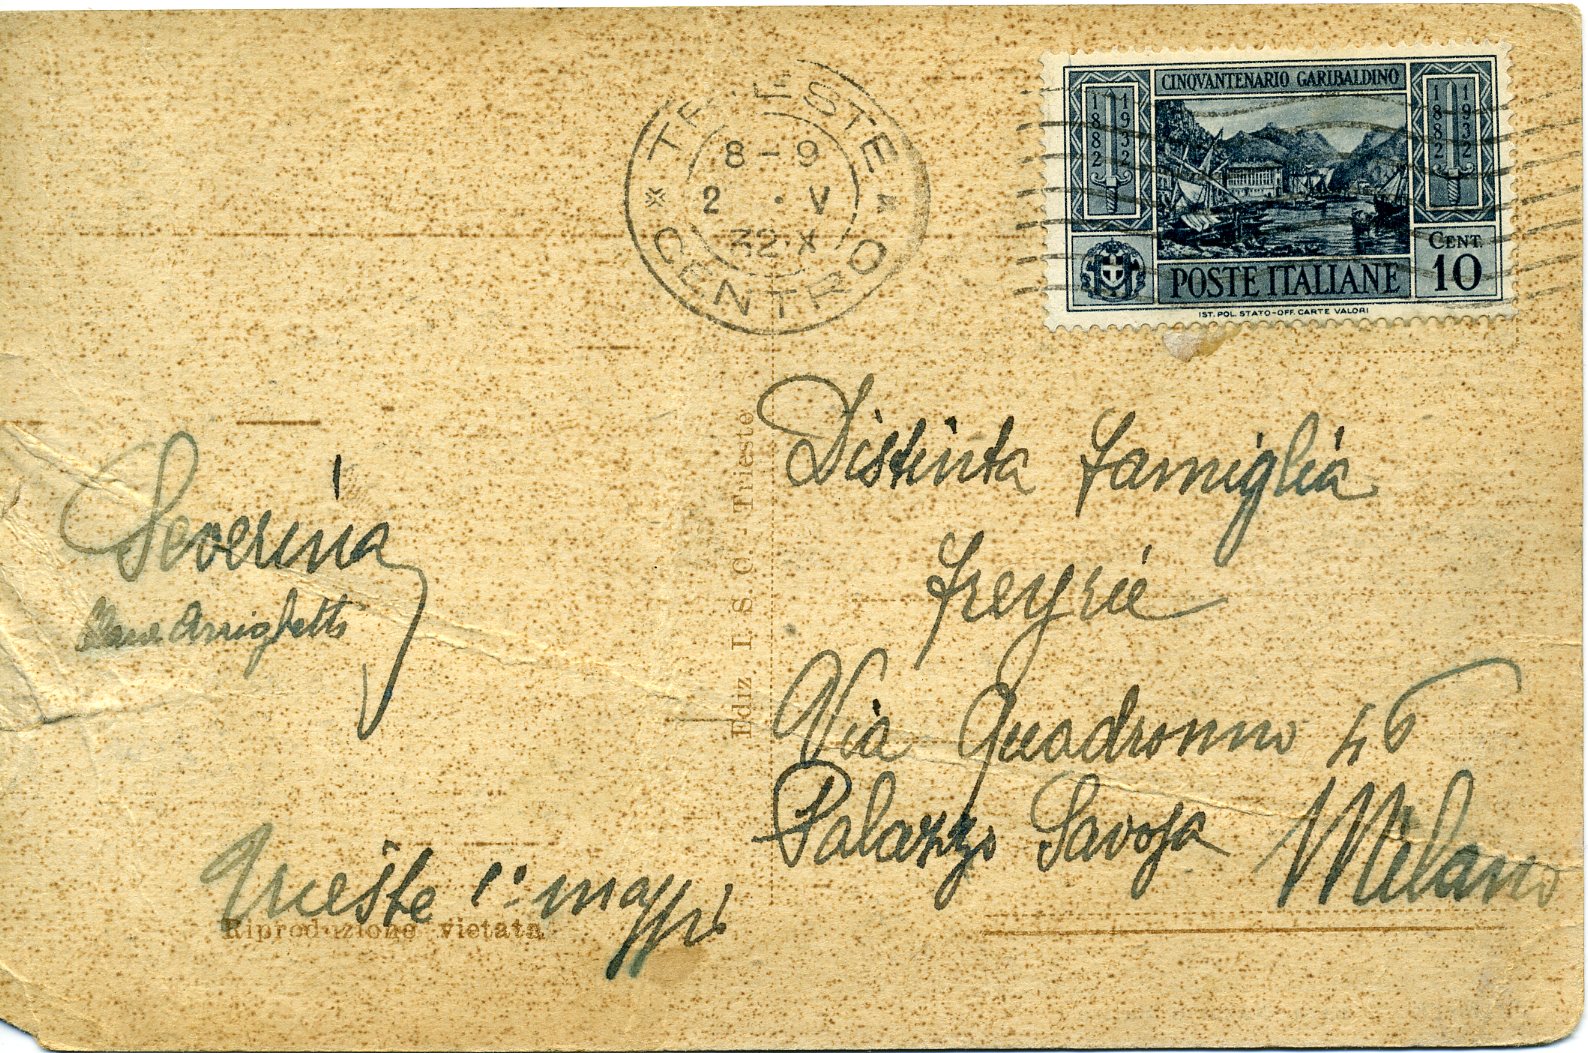 TRIESTE
8-9
2 · V
32 X
CENTRO
CINQVANTENARIO GARIBALDINO
1882 1932
1882 1932
CENT.
10
POSTE ITALIANE
IST. POL. STATO-OFF. CARTE VALORI
Distinta famiglia
Freyrie
Via Quadronno 46
Palazzo Savoja Milano
Ediz I. S. C. Trieste
Severina
Arrighetti
Trieste 1° maggio
Riproduzione vietata